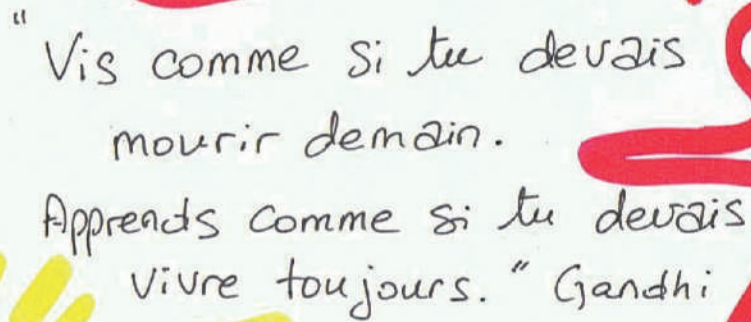 "Vis comme si tu devais
mourir demain.
Apprends comme si tu devais
vivre toujours." Gandhi